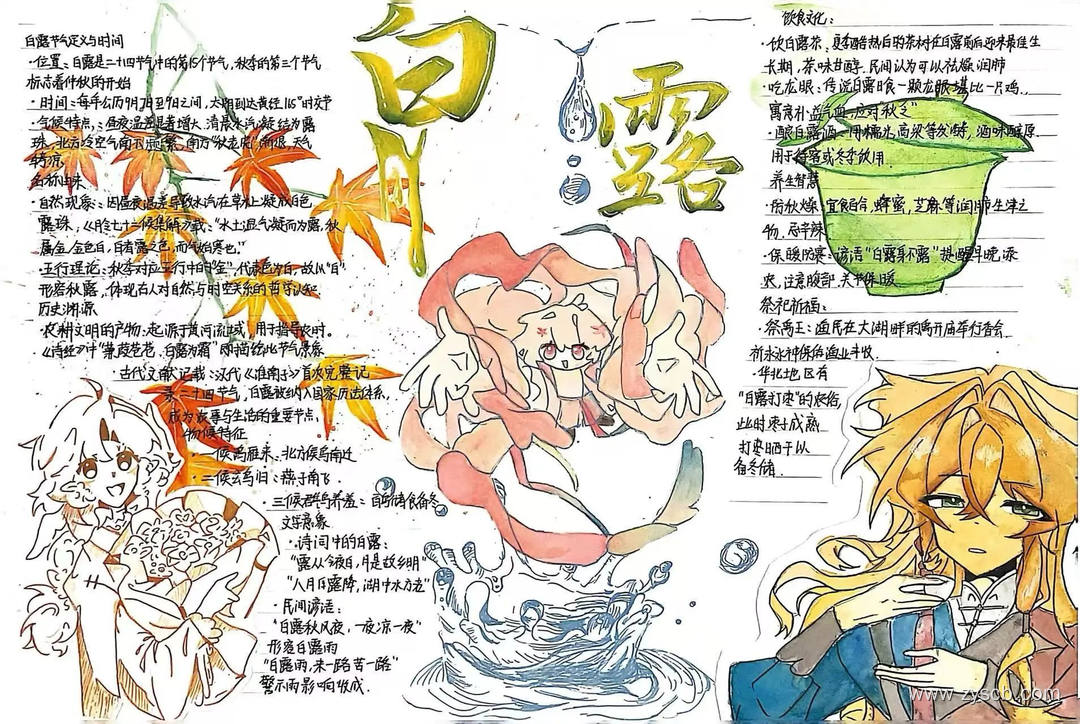 白露
白露节气定义与时间
·位置:白露是二十四节气中的第15个节气,秋季的第三个节气
标志着仲秋的开始
·时间:每年公历9月7日至9日之间,太阳到达黄经165°时交节
·气候特点:昼夜温差显著增大,清晨水汽凝结为露
珠,北方冷空气南下频繁,南方"秋老虎"渐退,天气
转凉
名称由来
·自然现象:因昼夜温差导致水汽在草木上凝成白色
露珠,《月令七十二候集解》载:"水土湿气凝而为露,秋
属金,金色白,白者露之色,而气始寒也。"
·五行理论:秋季对应五行中的"金",代表色为白,故以"白"
形容秋露,体现古人对自然与时空关系的哲学认知
历史渊源
·农耕文明的产物:起源于黄河流域,用于指导农时。
《诗经》中"蒹葭苍苍,白露为霜"即描绘此节气景象
·古代文献记载:汉代《淮南子》首次完整记
录二十四节气,白露被纳入国家历法体系,
成为农事与生活的重要节点,
物候特征
一候鸿雁来:北方候鸟南迁
·二候玄鸟归:燕子南飞.
三候群鸟养羞:百鸟储食备冬
文学意象
·诗词中的白露:
"露从今夜白,月是故乡明"
"八月白露降,湖中水方老"
·民间谚语:
"白露秋风夜,一夜凉一夜"
形容白露雨
"白露雨,来一路苦一路"
警示雨影响收成.
饮食文化:
·饮白露茶:夏季酷热后的茶树在白露前后迎来最佳生
长期,茶味甘醇.民间认为可以祛燥润肺
·吃龙眼:传说白露日食一颗龙眼堪比一只鸡.,
寓意补益气血,应对秋乏"
·酿白露酒:用糯米,高粱等发酵,酒味醇厚.
用于待客或冬季饮用
养生智慧
·防秋燥:宜食百合,蜂蜜,芝麻等润肺生津之
物.忌辛辣
·保暖防寒:谚语"白露身不露"提醒早晚添
衣,注意腹部.关节保暖
祭祀祈福:
·祭禹王:渔民在太湖畔的禹王庙举行香会
祈求水神保佑渔业丰收.
·华北地区有
"白露打枣"的农俗,
此时枣子成熟
打枣晒干以
备冬储.
www.zyscb.com